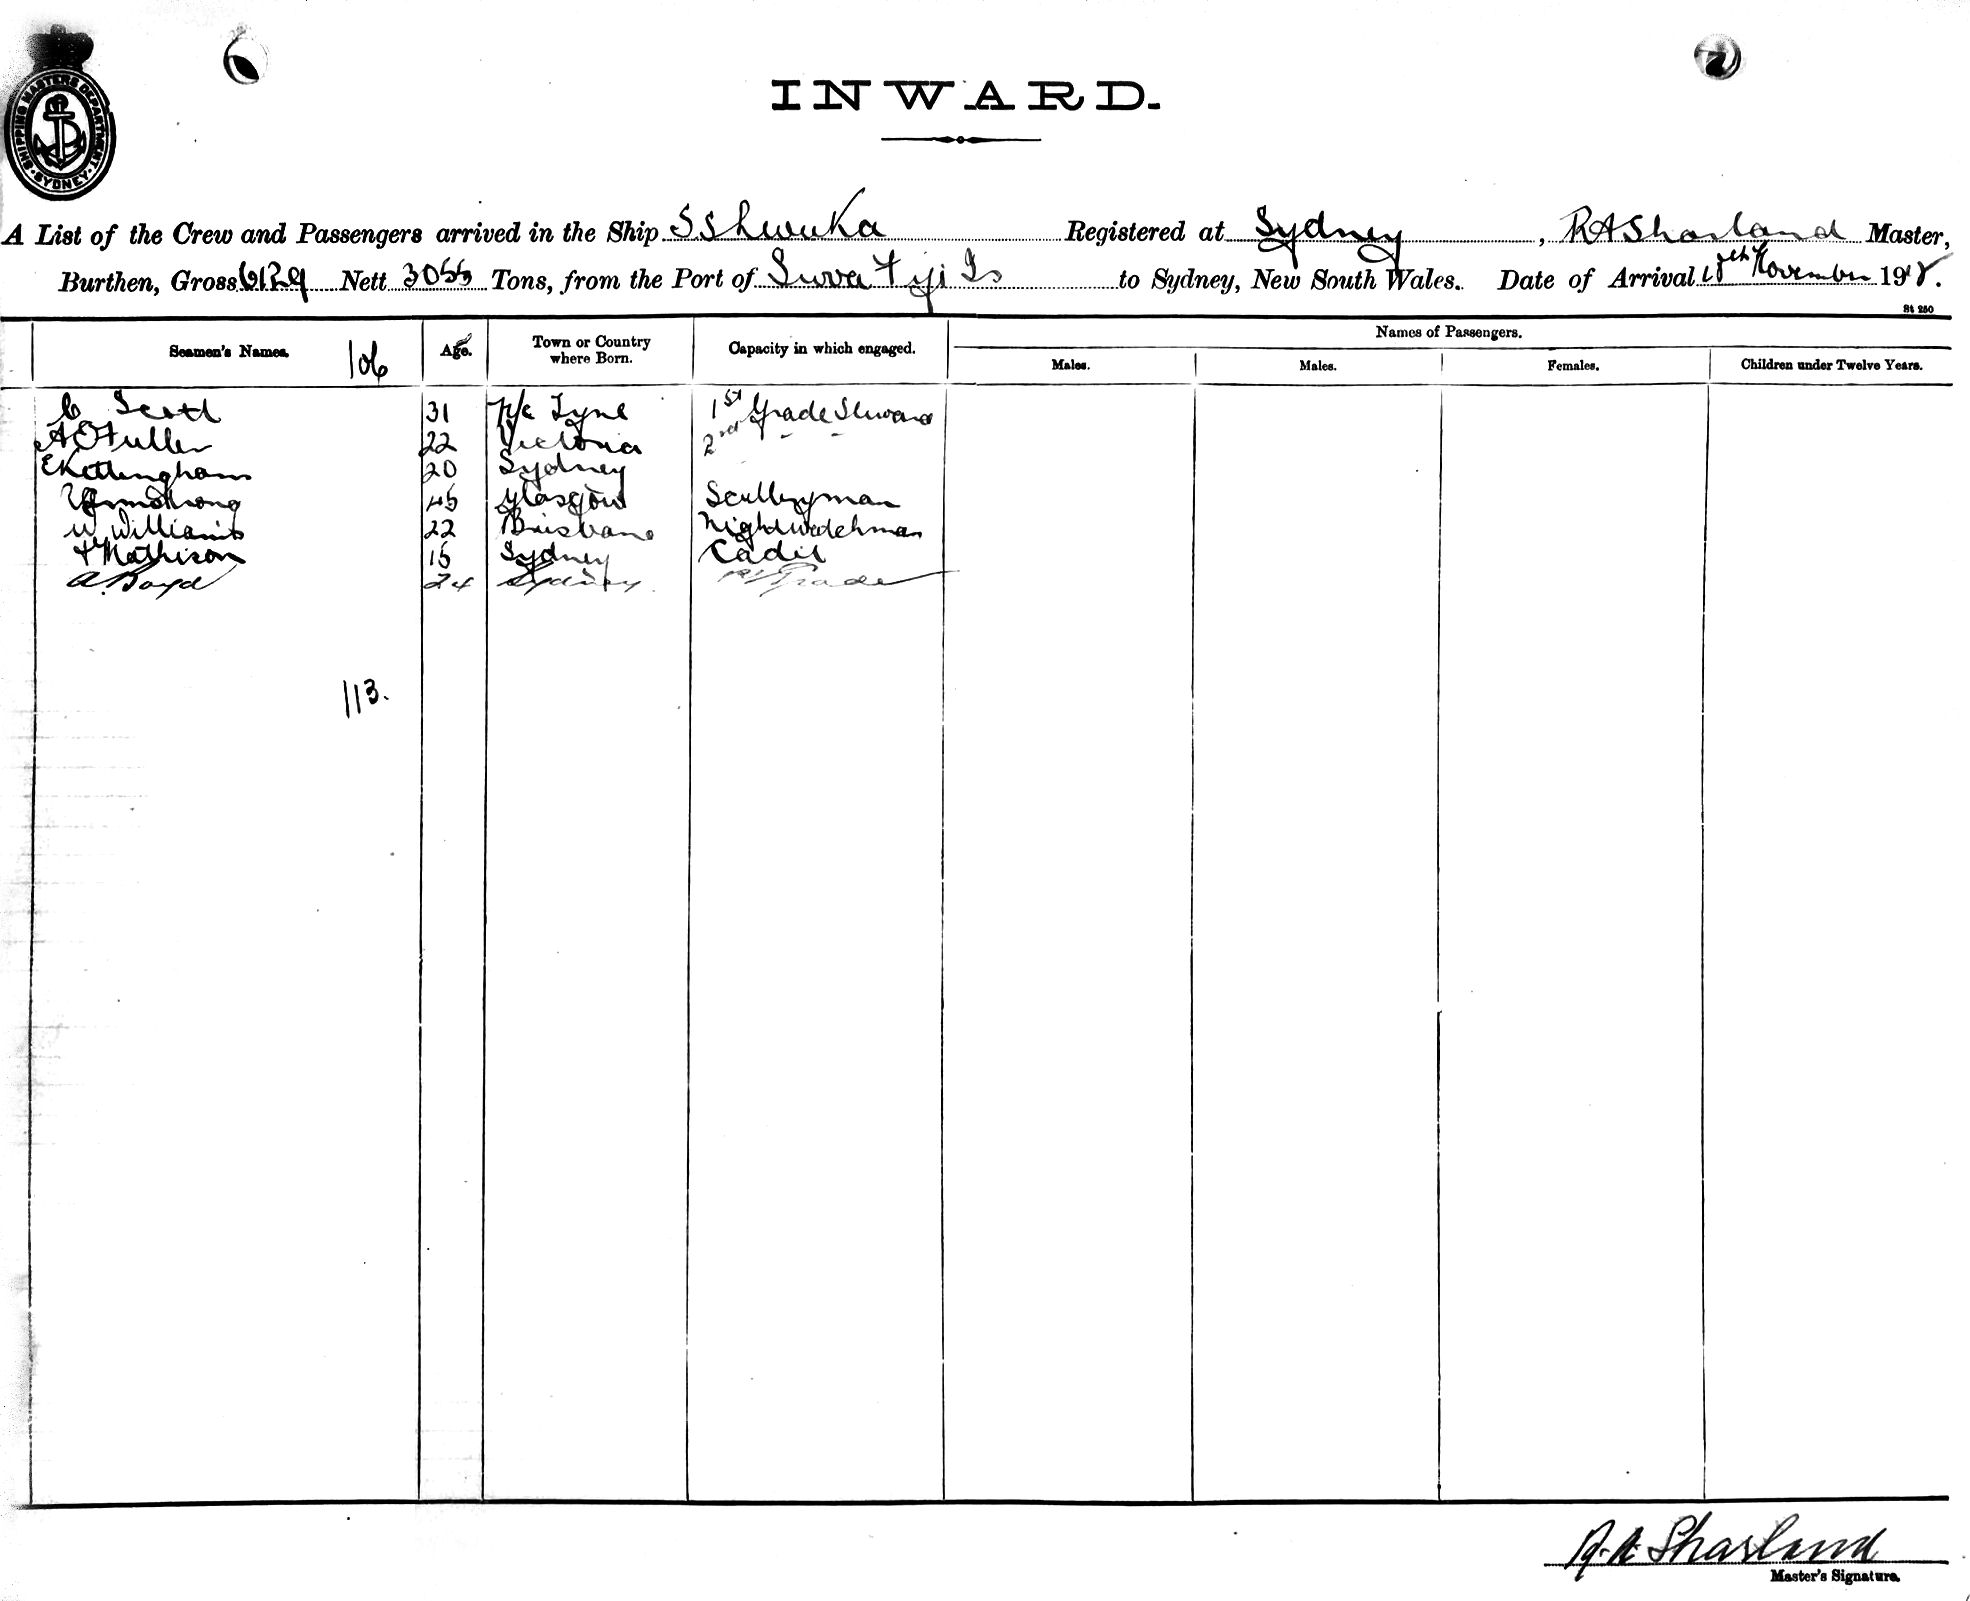 INWARD.
SHIPPING MASTERS DEPARTMENT SYDNEY
A List of the Crew and Passengers arrived in the Ship SS Levuka Registered at Sydney, R A Sharland Master,
Burthen, Gross 6129 Nett 3055 Tons, from the Port of Suva Fiji Is to Sydney, New South Wales. Date of Arrival 18th November 1918.
St 250
Seamen's Names. 106 Age. Town or Country where Born. Capacity in which engaged. Names of Passengers.
Males. Males. Females. Children under Twelve Years.
C Scott 31 N/c Tyne 1st Grade Steward
A E Fuller 22 Victoria 2nd " "
E Kettingham 20 Sydney
Armstrong 45 Glasgow Sculleryman
W Williams 22 Brisbane Nightwatchman
F Mathison 15 Sydney Cadet
A. Boyd 24 Sydney Grade
113.
R. A. Sharland
Master's Signature.